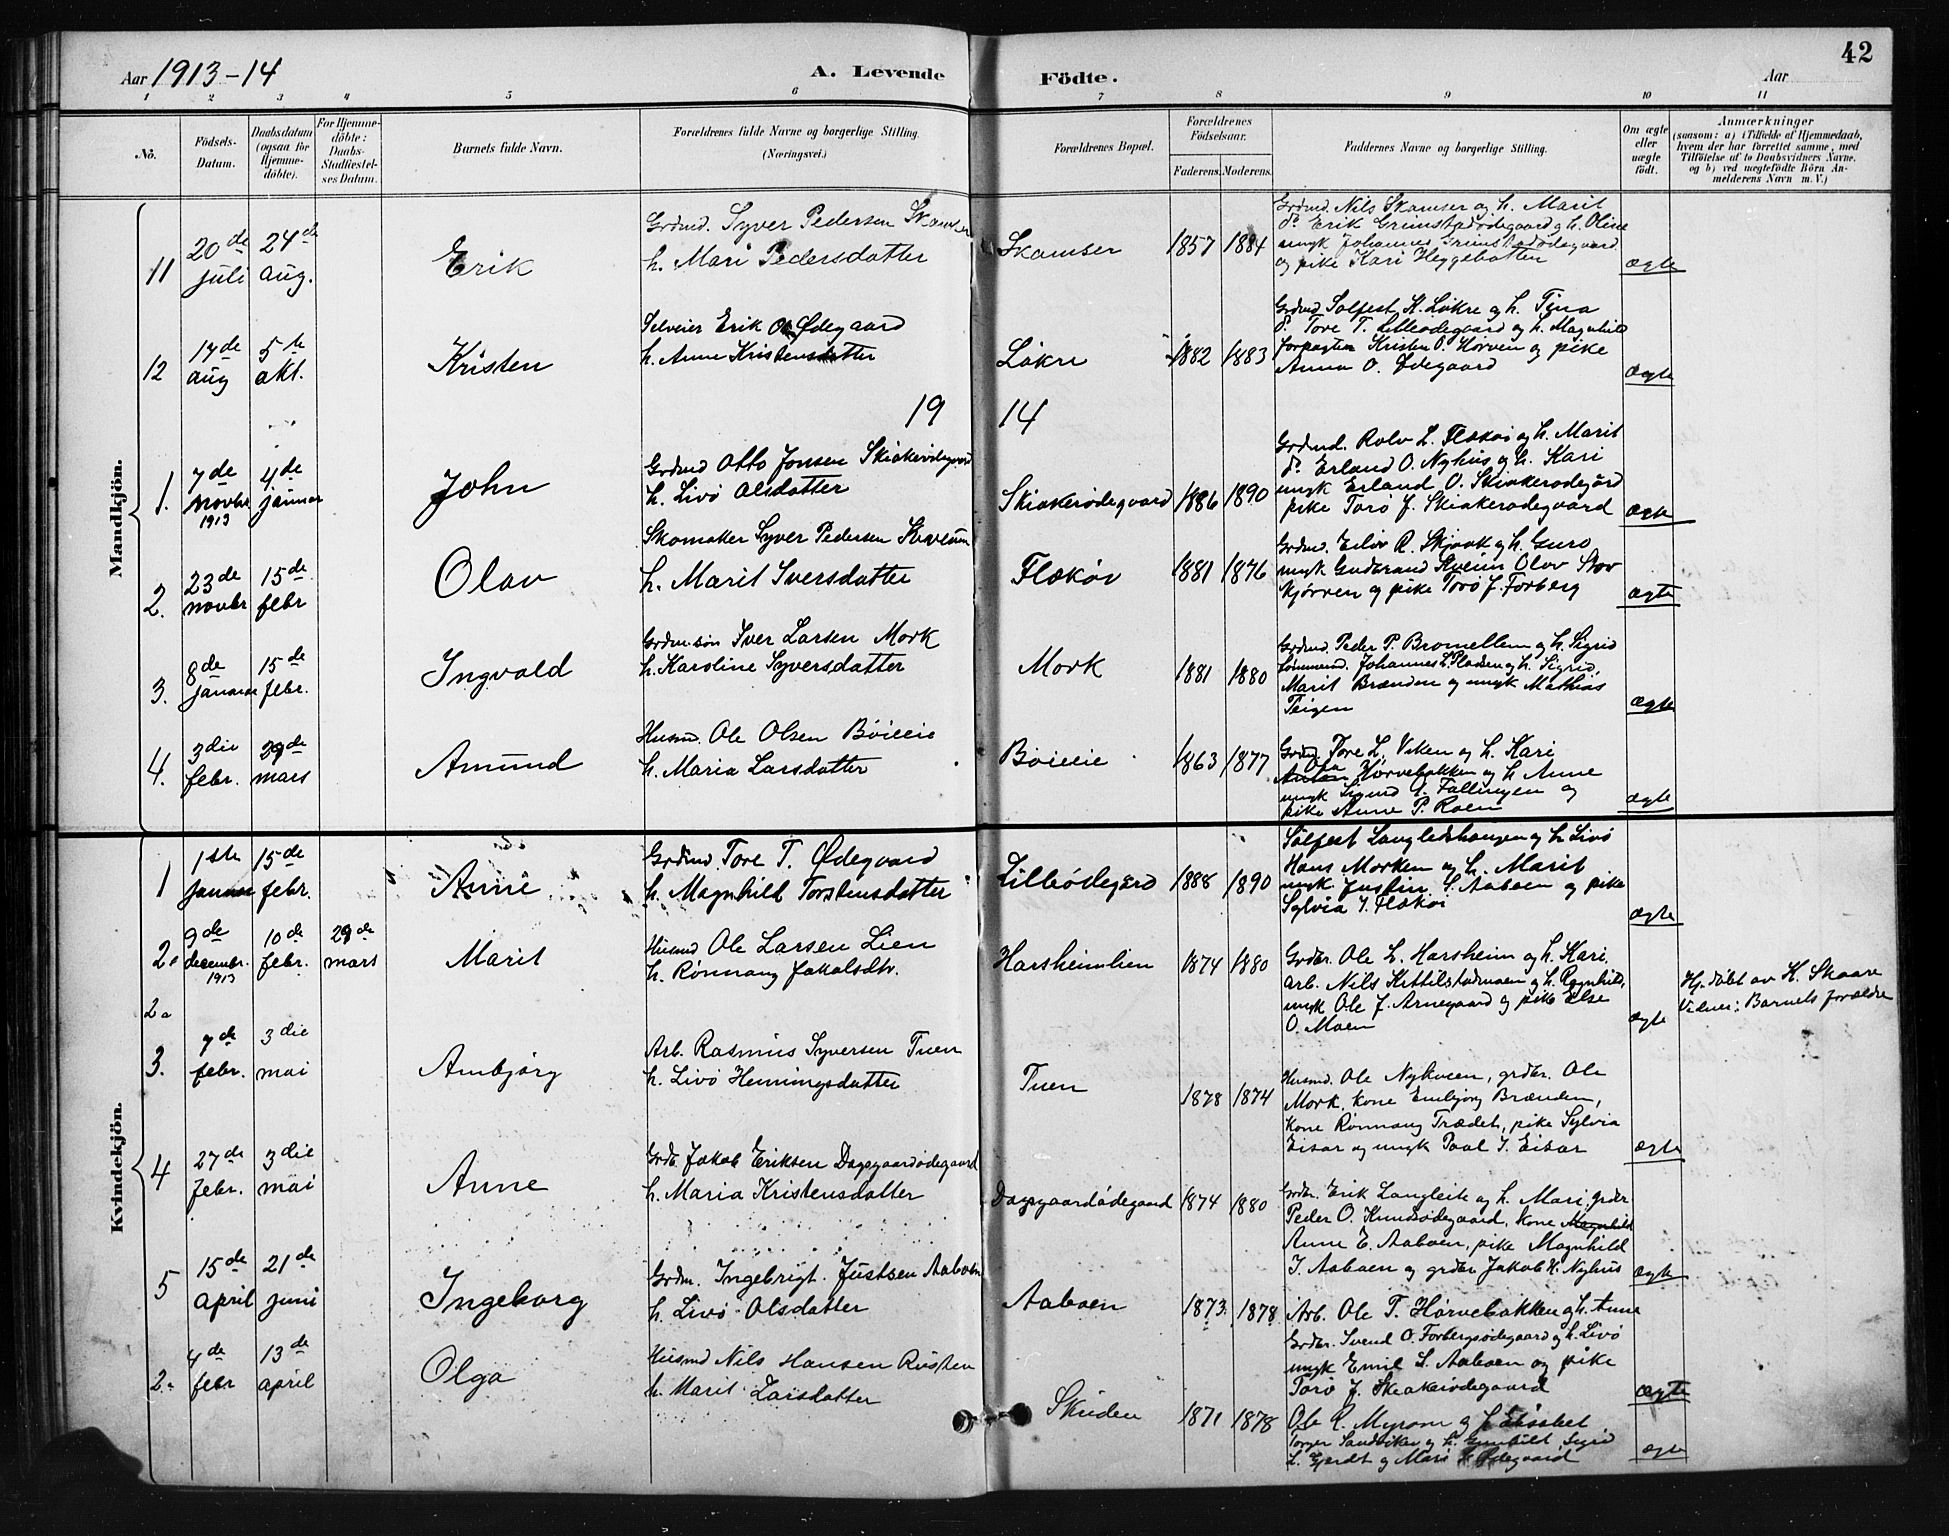 Aar 1913-14
A. Levende
Födte.
Aar
42
1 2 3 4 5 6 7 8 9 10 11
No.
Födsels-Datum.
Daabsdatum (ogsaa for Hjemme-döbte).
For Hjemme-döbte: Daabs-Stadfæstelses Datum.
Barnets fulde Navn.
Forældrenes fulde Navne og borgerlige Stilling. (Næringsvei.)
Forældrenes Bopæl.
Forældrenes Födselsaar.
Faderens. Moderens.
Faddernes Navne og borgerlige Stilling.
Om ægte eller uægte födt.
Anmærkninger
(saasom: a) i Tilfælde af Hjemmedaab, hvem der har forrettet samme, med Tilföielse af to Daabsvidners Navne, og b) ved uægtefödte Börn Anmelderens Navn m. V.)
Mandkjön.
11
20de juli
24de aug.
Erik
Grdmd. Syver Pedersen Skamser
h. Mari Pedersdatter
Skamser
1857 1884
Grdmd. Nils Skamser og h. Marit
do Erik Grimstadødegaard og h. Oline
ungk Johannes Grimstadødegaard
og pike Kari Heggebotten
ægte
12
14de aug
5te okt.
Kristen
Selveier Erik O. Ødegaard
h. Anne Kristensdatter
Løkre
1882 1883
Grdmd Solfest K. Løkre og h. Tyna
do Tore T. Lilleødegaard og h. Magnhild
forpagter Kristen O. Hørven og pike
Anna O. Ødegaard
ægte
19 14
1.
7de novbr 1913
4.de januar
John
Grdmd Otto Jonsen Skiakerødegaard
h. Livø Olsdatter
Skiakerødegaard
1886 1890
Grdmd. Rolv L. Flækøi og h. Marit
do Erland O. Nyhus og h. Kari
ungk Erland O. Skiakerødegård
pike Torø J. Skiakerødegaard
ægte
2.
23de novbr
15de febr
Olav
Skomaker Syver Pedersen Kveum
h. Marit Iversdatter
Flækøy
1881 1876
Grdmd. Eiliv R. Skjaak og h. Guro
ungk Gudbrand Kveum Olav Stor
Kjørren og pike Torø J. Forberg
ægte
3.
8de januar
15de febr.
Ingvald
Grdm.søn Iver Larsen Mork
h. Karoline Syversdatter
Mork
1881 1880
Grdmd. Peder P. Bromellem og h. Sigrid
Johannes L. Pladsen og h. Sigrid,
Marit Brænden og ungk Mathias
Teigen
ægte
4.
3die febr.
29de mars
Amund
Husmd. Ole Olsen Bøieeie
h. Maria Larsdatter
Bøieeie
1863 1877
Grdmd Tore L. Viken og h. Kari
Ola Hørvebakken og h Anne
ungk Sigurd E. Fallingen og
pike Anne P. Roen
ægte
Kvindekjön.
1
1ste januar
15de febr.
Anne
Grdmd. Tore T. Ødegaard
h. Magnhild Torstensdatter
Lilleødegård
1888 1890
Solfest Langleitshaugen og h. Livø
Hans Morken og h. Marit
ungk. Justin S. Aaboen og pike
Sylvia I. Flækøi
ægte
2.
9de decembr. 1913
10de febr.
29de mars
Marit
Husmd Ole Larsen Lien
h. Rønnaug Jakobsdtr.
Harsheimlien
1874 1880
Grdbr. Ole L. Harsheim og h. Kari.
arb. Nils Kittilstadmoen og h. Ragnhild,
ungk Ole J. Arnegaard og pike Else
O. Moen
ægte
Hj. døbt av K. Skaare
Vidner: Barnets forældre
2a
3.
7de febr.
3die mai
Ambjørg
Arb. Rasmus Syversen Tuen
h. Livø Henningsdatter
Tuen
1878 1874
Husmd. Ole Nykveen, grdbr. Ole
Mork, kone Embjørg Brænden,
kone Rønnaug Trædet, pike Sylvia
Eisar og ungk Paal I. Eisar
ægte
4
27de febr.
3die mai
Anne
Grdb. Jakob Eriksen Dagsgaardødegaard
h. Maria Kristensdatter
Dagsgaardødegaard
1874 1880
Grdbr. Erik Langleite og h. Mari, grdbr
Peder O. Knudsødegaard, kone Magnhild
Anne E. Aaboen, pike Magnhild
I. Aaboen og grdbr Jakob H. Nyhus
ægte
5
15de april
21de juni
Ingeborg
Grdm. Ingebrigt Justsen Aaboen
h. Livø Olsdatter
Aaboen
1873 1878
Arb. Ole T. Hørvebakken og h. Anne
Grdbr. Svend O. Forbergsødegaard og h. Livø
ungk Emil S. Aaboen og pike
Torø J. Skeakerødegaard
ægte
2.
4de febr
13de april
Olga
Husmd Nils Hansen Rusten
h. Marit Larsdatter
Skriden
1871 1878
Ole R. Myrom og h. Elisabet
Torger Sandviken og h. Gunhild Sigrid
L. Gjerdet og Mari Ødegaard
ægte